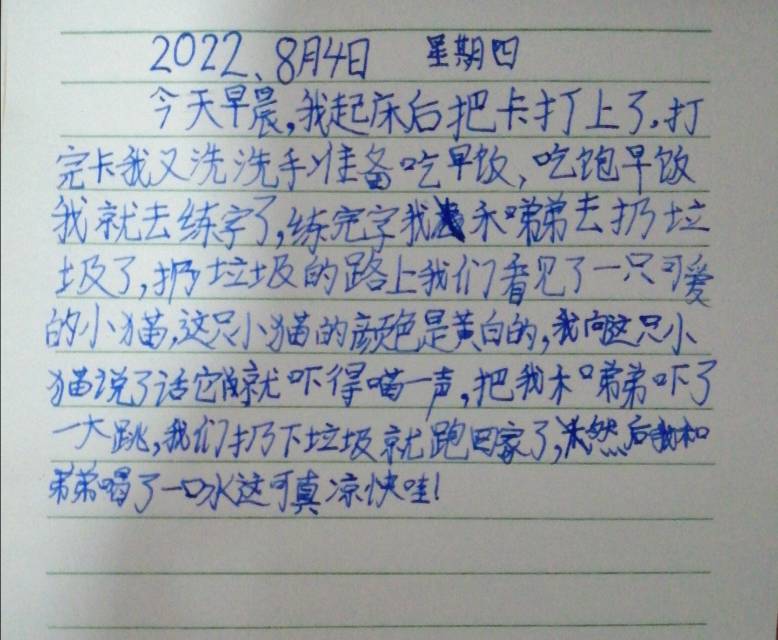 2022、8月4日 星期四
今天早晨,我起床后把卡打上了.打
完卡我又洗洗手准备吃早饭、吃饱早饭
我就去练字了,练完字我和弟弟去扔垃
圾了,扔垃圾的路上我们看见了一只可爱
的小猫,这只小猫的颜色是黄白的,我向这只小
猫说了话它就吓得喵一声,把我和弟弟吓了
一大跳,我们扔下垃圾就跑回家了,然后我和
弟弟喝了一口水这可真凉快哇!